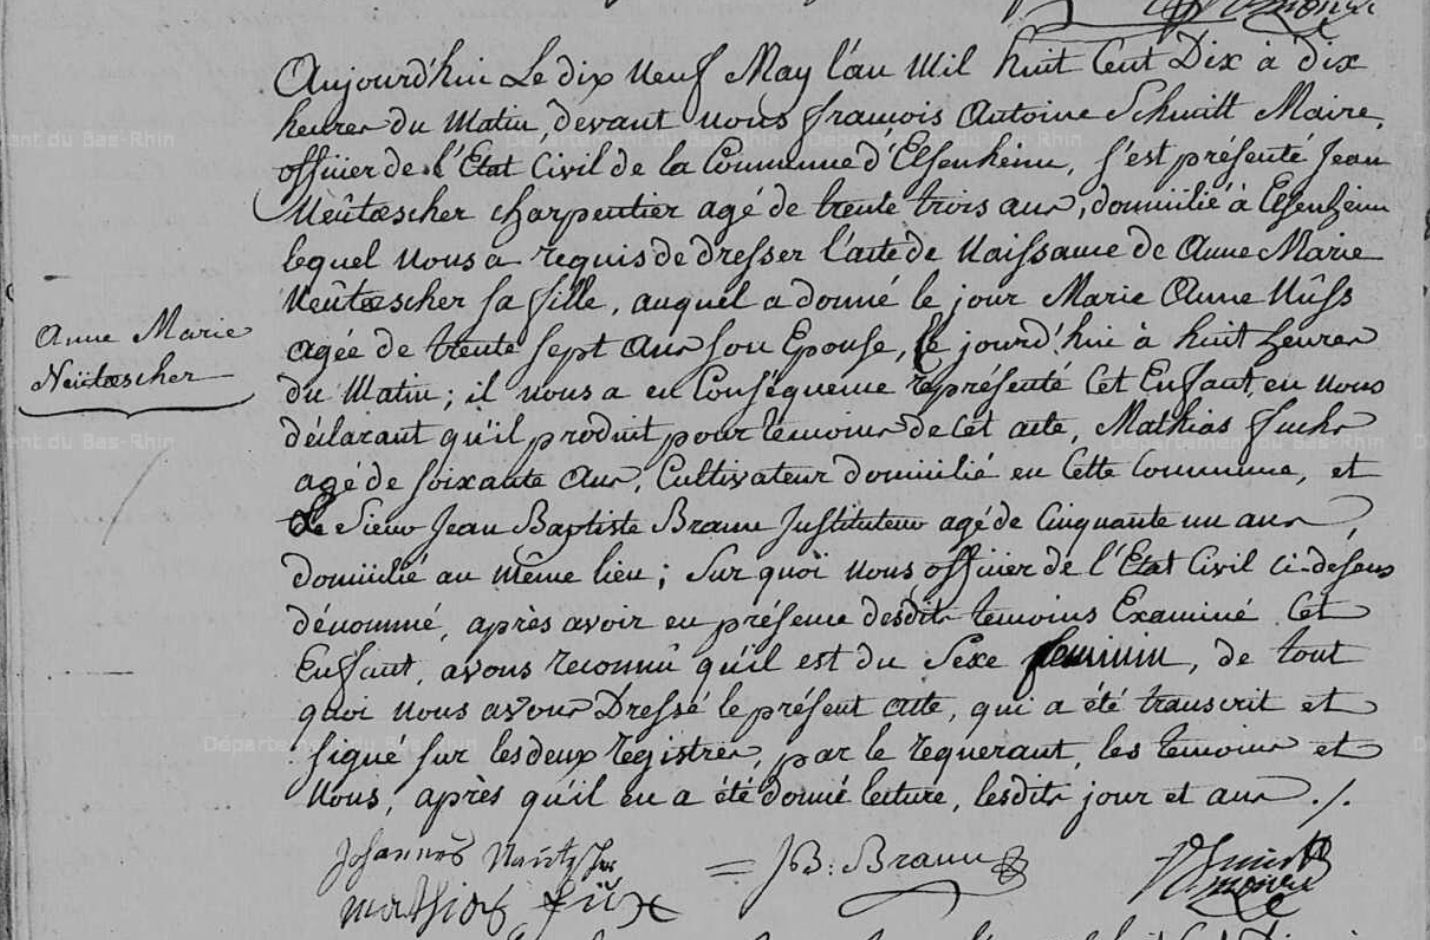 Aujourd'hui Le dix neuf May l'an Mil huit Cent Dix à dix
heures du Matin, devant nous françois Antoine Schmitt Maire,
officier de l'Etat Civil de la Commune d'Elsenheim, s'est présenté Jean
Neûtæscher charpentier agé de trente trois ans, domicilié à Elsenheim
lequel Nous a requis de dresser l'acte de Naissance de Anne Marie
Neûtæscher sa fille, auquel a donné le jour Marie Anne Nûss
Anne Marie
Neütæscher
agée de trente sept Ans son Epouse, le jourd'hui à huit heures
du Matin; il nous a en Conséquence représenté Cet Enfant, en nous
déclarant qu'il produit pour temoins de Cet acte, Mathias fuchs
agé de soixante Ans, Cultivateur domicilié en Cette Commune, et
Le Sieur Jean Baptiste Braun Instituteur agé de Cinquante un ans,
domicilié au même lieu; Sur quoi nous officier de l'Etat Civil ci-desous
dénommé, après avoir en présence desdits temoins Examiné Cet
Enfant, avons reconnû qu'il est du Sexe feminin, de tout
quoi nous avons Dressé le présent acte, qui a été transcrit et
signé sur les deux registres, par le requerant, les temoins et
Nous, après qu'il en a été donné lecture, lesdits jour et ans ./.
Johannes
J.B: Braun
Schmitt
mathis fux
maire
Département du Bas-Rhin